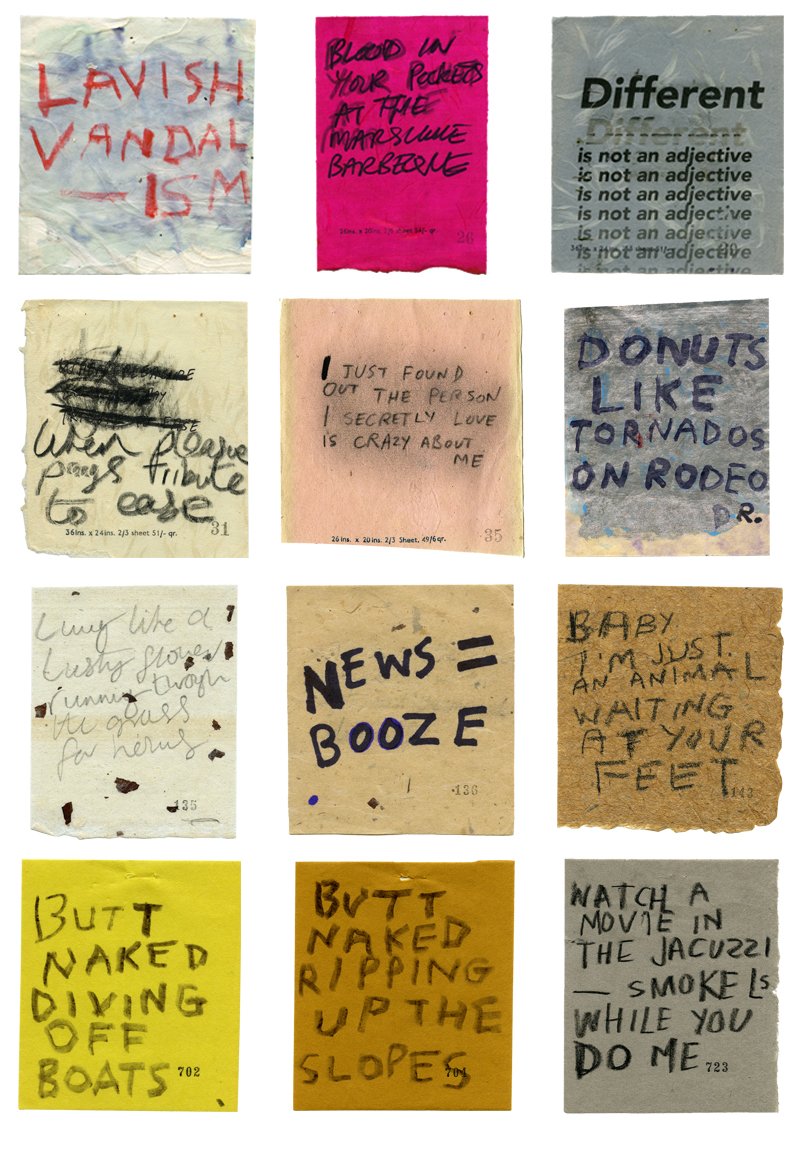 LAVISH
VANDAL
— ISM
BLOOD IN
YOUR POCKETS
AT THE
MARSEILLE
BARBEQUE
26ins. x 20ins. 2/3 sheet 54/- qr.
26
Different
Different
is not an adjective
is not an adjective
is not an adjective
is not an adjective
is not an adjective
is not an adjective
is not an adjective
When pleasure
pays tribute
to ease
36ins. x 24ins. 2/3 sheet 51/- qr.
31
I JUST FOUND
OUT THE PERSON
I SECRETLY LOVE
IS CRAZY ABOUT
ME
26ins. x 20ins. 2/3 Sheet. 49/6 qr.
35
DONUTS
LIKE
TORNADOS
ON RODEO
DR.
Living like a
Lusty flower
running through
the grass
for
135
NEWS =
BOOZE
136
BABY
I'M JUST
AN ANIMAL
WAITING
AT YOUR
FEET
143
BUTT
NAKED
DIVING
OFF
BOATS
702
BUTT
NAKED
RIPPING
UP THE
SLOPES
704
WATCH A
MOVIE IN
THE JACUZZI
— SMOKE Ls
WHILE YOU
DO ME
723